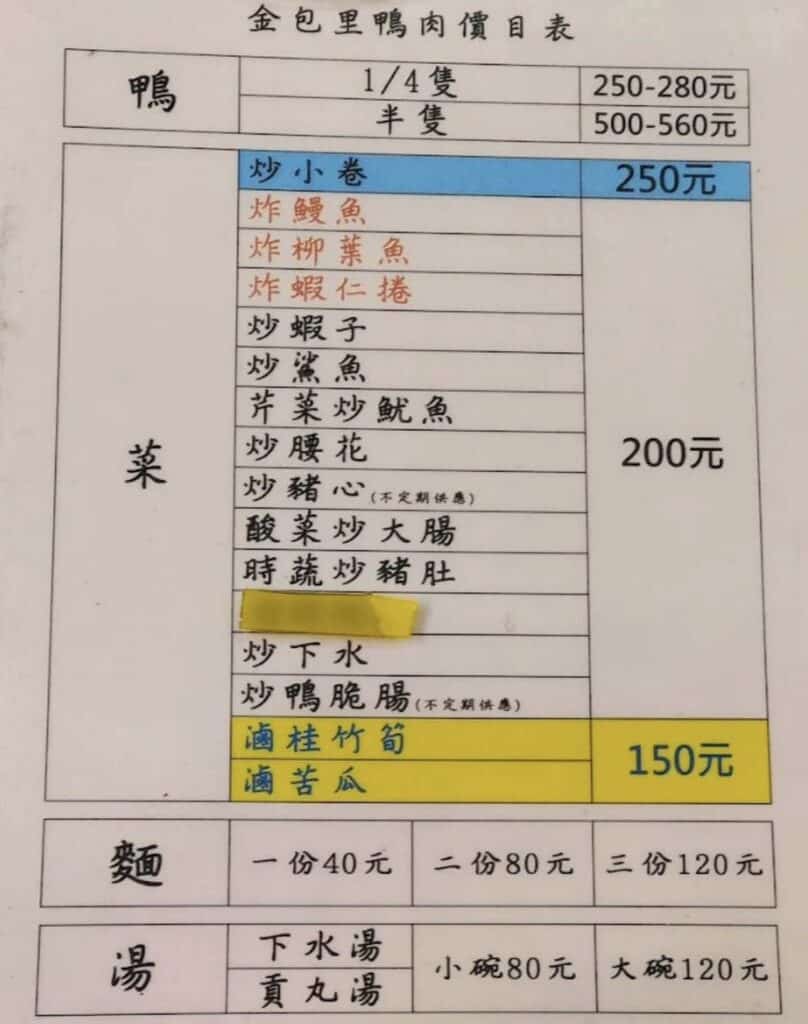 金包里鴨肉價目表
鴨
1/4隻 250-280元
半隻 500-560元
菜
炒小卷 250元
炸鰻魚
炸柳葉魚
炸蝦仁捲
炒蝦子
炒鯊魚
芹菜炒魷魚
炒腰花
200元
炒豬心(不定期供應)
酸菜炒大腸
時蔬炒豬肚
炒下水
炒鴨脆腸(不定期供應)
滷桂竹筍
滷苦瓜
150元
麵 一份40元 二份80元 三份120元
湯
下水湯
貢丸湯
小碗80元 大碗120元